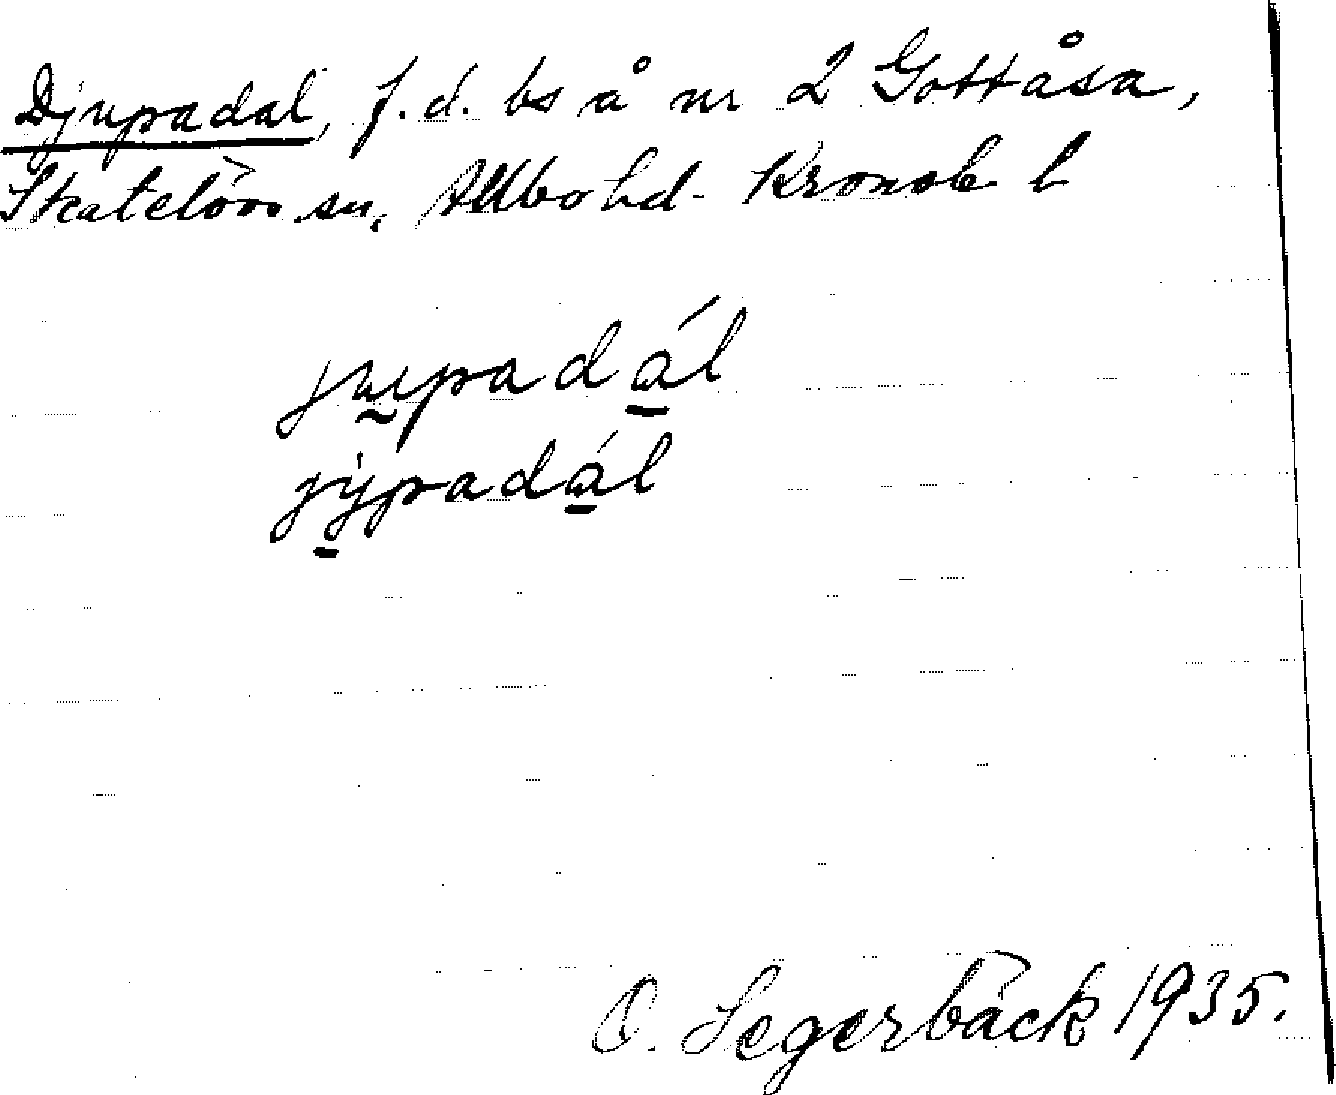 Djupadal, f.d. bs å nr 2 Gottåsa,
Skatelövs sn, Allbo hd. Kronob. l
jupadál
jypadál
O. Segerbäck 1935.